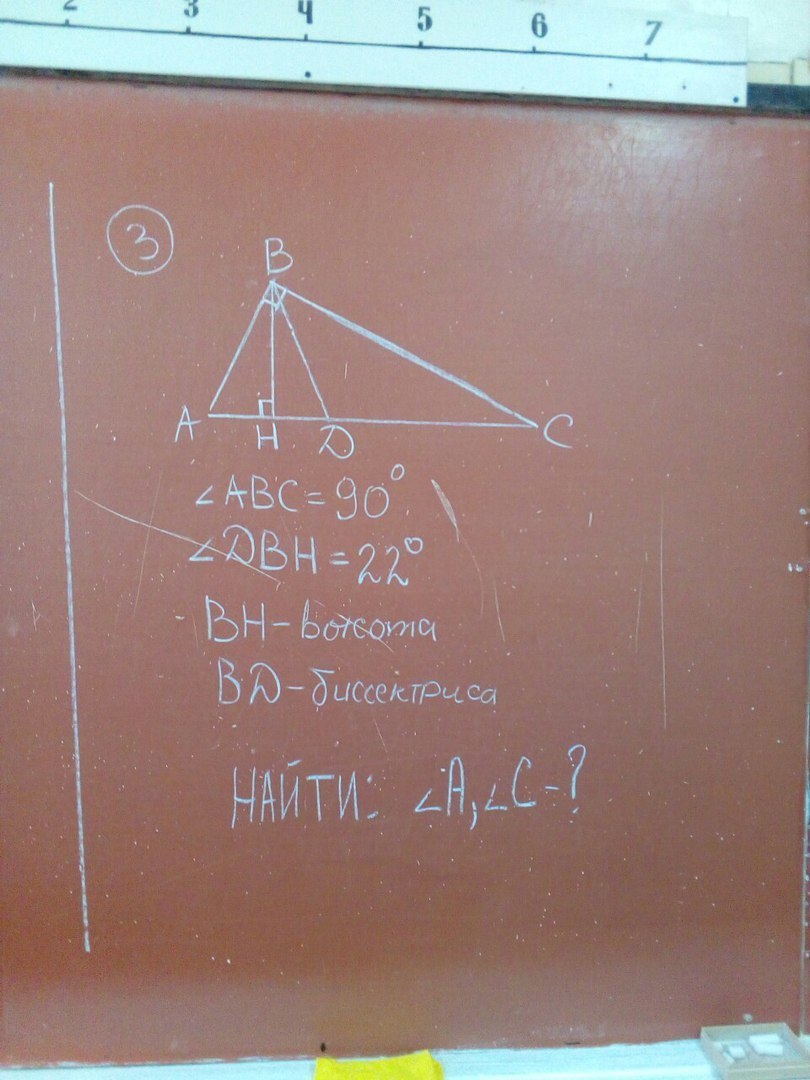 2 3 4 5 6 7
3
B
A H D C
∠ABC = 90°
∠DBH = 22°
BH - высота
BD - биссектриса
НАЙТИ: ∠A, ∠C - ?